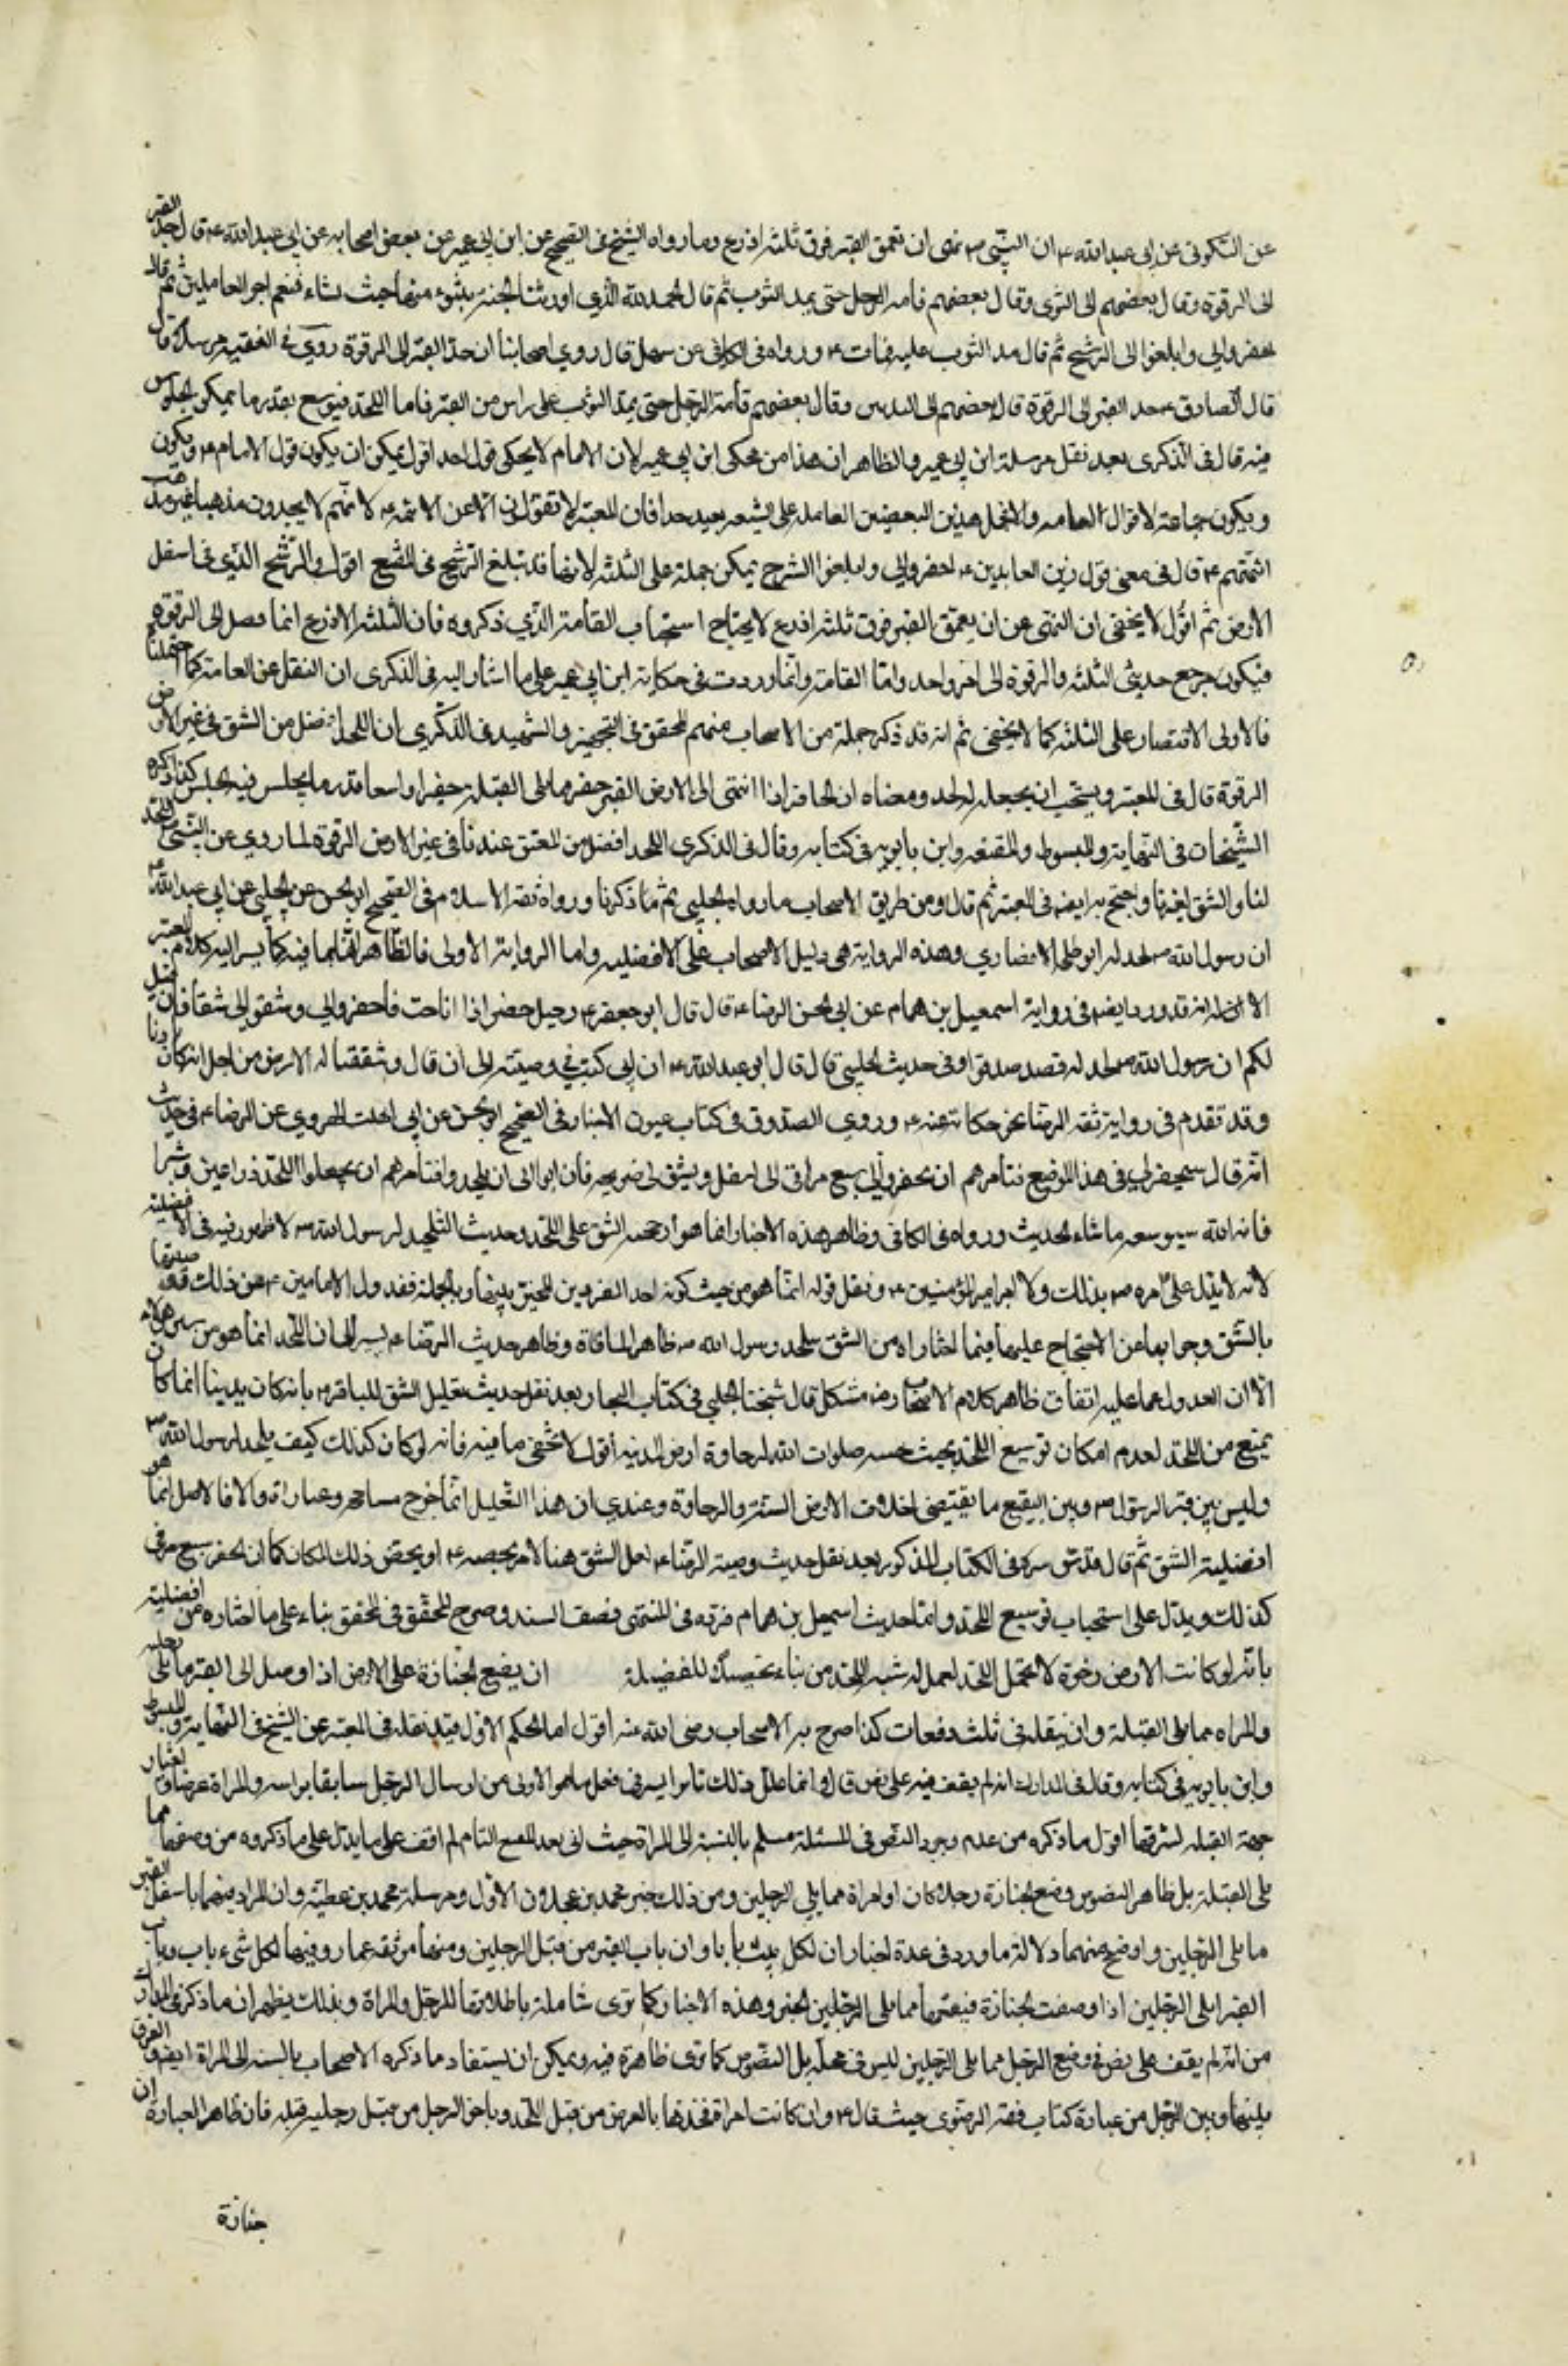 عن السكونى عن ابى عبد الله ع ان النبي ص نهى ان تعمق القبر فوق ثلثه اذرع وما رواه الشيخ فى الصحيح عن ابن ابى عمير عن بعض اصحابه عن ابى عبد الله ع قال حد القبر
الى الرقوة وقال بعضهم الى الثرى وقال بعضهم قامه الرجل حتى يمد الثوب ثم قال الحمد لله الذى اورثنا الجنة نتبوء منها حيث نشاء فنعم اجر العاملين ثم قال
احفروا لى وابلغوا الى الرشح ثم قال مد الثوب عليه فمات ع ورواه فى الكافى عن سهل قال روى اصحابنا ان حد القبر الى الرقوة روى فى الفقيه مرسلا قال
قال الصادق ع حد القبر الى الرقوة قال بعضهم الى الثديين وقال بعضهم قامة الرجل حتى يمد الثوب على راس من القبر فاما اللحد فيوسع بقدر ما يمكن الجلوس
فيه قال فى الذكرى بعد نقل مرسلة ابن ابى عمير والظاهر ان هذا من محكى ابن ابى عمير لان الامام لا يحكى قول احد اقول يمكن ان يكون قول الامام ع ويكون
ويكون حكاية لاقوال العامه والا لحمل هذين البعضين العامله على الشيعه بعيد جدا فان الشيعه لا تقول الا عن الائمه ع لانهم لا يجدون مذهبا غير مذهب
ائمتهم ع قال فى معنى قول زين العابدين ع احفروا لى وابلغوا الرشح يمكن حمله على الثلثه لانها قد تبلغ الرشح فى البقيع اقول والرشح الندى فى اسفل
الارض ثم اقول لا يخفى ان النهى عن ان يعمق القبر فوق ثلثه اذرع لا يجتاح استحباب القامة الذى ذكروه فان الثلثه الاذرع انما تصل الى الرقوة
فيكون مرجع حديثى الثلثه والرقوة الى امر واحد واما القامة وانما وردت فى حكاية ابن ابى عمير على ما اشار اليه فى الذكرى ان النقل عن العامة كما احتملنا
فالاولى الاقتصار على الثلثه كما لا يخفى ثم انه قد ذكر جملة من الاصحاب منهم المحقق فى التجهيز والشهيد فى الذكرى ان اللحد افضل من الشق فى غير الارض
الرقوة قال فى المعتبر ويستحب ان يجعل له لحد ومعناه ان الحافر اذا انتهى الى الارض القبر حفر مما يلى القبلة حفيرا واسعا قدر ما يجلس فيه الجالس كذا ذكره
الشيخان فى النهاية والمبسوط والمقنعه وابن بابويه فى كتابه وقال فى الذكرى اللحد افضل من الشق عندنا فى غير الارض الرخوة لما روى عن النبي ص اللحد
لنا والشق لغيرنا واحتج به ايضا فى المعتبر ثم قال ومن طريق الاصحاب ما رواه الحلبى ثم ما ذكرنا ورواه ثقه الاسلام فى الصحيح او الحسن عن الحلبى عن ابى عبد الله ع
ان رسول الله ص لحد له ابو طلحه الانصارى وهذه الرواية هى دليل الاصحاب على الافضليه واما الرواية الاولى فالظاهر
الا انه قد ورد ايضا فى رواية اسمعيل بن همام عن ابى الحسن الرضا ع قال قال ابو جعفر ع حين حضر اذا انا مت فاحفروا لى وشقوا لى شقا فان قيل
لكم ان رسول الله ص لحد له فقد صدقوا وفى حديث الحلبى قال قال ابو عبد الله ع ان ابى كتب فى وصيته الى ان قال وشققنا له الارض من اجل انه كان بادنا
وقد تقدم فى رواية فقه الرضا نحو حكايته عنه ع وروى الصدوق فى كتاب عيون الاخبار فى الصحيح او الحسن عن ابى الصلت الهروى عن الرضا ع فى حديث
انه قال سيحفر لى فى هذا الموضع فتامرهم ان يحفروا لى سبع مراقى الى اسفل ويشق لى ضريحه فان ابوا الا ان يلحدوا فتامرهم ان يجعلوا اللحد ذراعين وشبرا
فان الله سيوسعه ما شاء الحديث ورواه فى الكافى وظاهر هذه الاخبار انما هو ارجحيه الشق على اللحد وحديث التلحيد لرسول الله ص لا ظهور فيه فى الافضلية
لانه لا يدل على امره ص بذلك ولا امر امير المؤمنين ع ونقل قوله انما هو من حيث كونه احد الفردين المخير بينهما وبالجملة فعدول الامامين ع عن ذلك
بالشق وجوابهما عن الاحتجاج عليهما فيما اختاراه من الشق بلحد رسول الله ص ظاهر المنافاة وظاهر حديث الرضا ع يشير الى ان اللحد انما هو من
الا ان العدول عما عليه اتفاق ظاهر كلام الاصحاب رض مشكل قال شيخنا المجلسى فى كتاب البحار بعد نقل حديث تعليل الشق للباقر ع بانه كان بدينا انما كان
يمنع من اللحد لعدم امكان توسيع اللحد بحيث يسعه صلوات الله لرخاوة ارض المدينه اقول لا يخفى ما فيه فانه لو كان كذلك كيف يلحد لرسول الله ص
وليس بين قبر الرسول ص وبين البقيع ما يقتضى اختلاف الارض الشدة والرخاوة وعندى ان هذا التعليل انما خرج مسامحه وعباراة والا فالاصل انما هو
افضلية الشق ثم قال قدس سره فى الكتاب المذكور بعد نقل حديث وصية الرضا ع لعل الشق هنا لامر يخصه ع او يخص ذلك المكان كما ان الحفر سبع مراقى
كذلك ويدل على استحباب توسيع اللحد واما حديث اسمعيل بن همام فرده فى المنتهى بضعف السند وصرح المحقق بناء على ما اختاره من افضلية
بانه لو كانت الارض رخوة لا تحتمل اللحد يعمل له شبه اللحد من بناء تحصيلا للفضيلة ان يضع الجنازة على الارض اذا وصل الى القبر مما يلى رجليه
والمراه مما يلى القبلة وان ينقله فى ثلث دفعات كذا صرح به الاصحاب رضى الله عنه اقول اما الحكم الاول فقد نقله فى المعتبر عن الشيخ فى النهاية والمبسوط
وابن بابويه فى كتابه وقال فى المدارك انه لم يقف فيه على نص قال وانما علل ذلك بانه ايسر فى فعل ما هو الاولى من ارسال الرجل سابقا براسه والمراة عرضا واختيار
جهة القبله لشرفها اقول ما ذكره من عدم وجود النص فى المسئلة مسلم بالنسبة الى المراة حيث انى بعد التتبع التام لم اقف على ما يدل على ما ذكروه من وضعها مما
يلى القبلة بل ظاهر النصوص وضع الجنازة رجلا كان او امراة مما يلى الرجلين ومن ذلك خبر محمد بن عجلان الاول ومرسلة محمد بن عطية وان المراد فيهما باسفل القبر
ما يلى الرجلين واوضح منهما دلالة ما ورد فى عدة اخبار ان لكل بيت بابا وان باب القبر من قبل الرجلين ومنها موثقه عمار وفيها لكل شيء باب وباب
القبر مما يلى الرجلين اذا وضعت الجنازة فضعها مما يلى الرجلين الخبر وهذه الاخبار كما ترى شاملة باطلاقها للرجل والمراة وبذلك يظهر ان ما ذكره فى المدارك
من انه لم يقف على نص فى وضع الرجل مما يلى الرجلين ليس فى محله بل النصوص كما ترى ظاهرة فيه ويمكن ان يستفاد ما ذكره الاصحاب بالنسبه الى المراة ايضا والفرق
بينها وبين الرجل من عبارة كتاب فقه الرضوى حيث قال ع وان كانت امراة فخذها بالعرض من قبل اللحد وياخذ الرجل من قبل رجليه فان ظاهر العبارة ان
جنازة